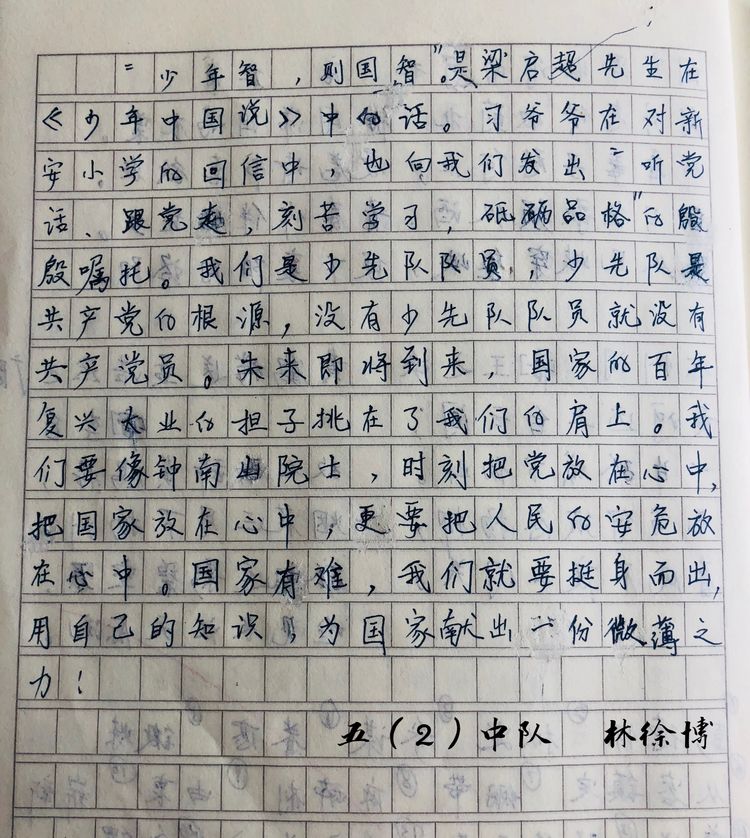 “少年智，则国智”。是梁启超先生在
《少年中国说》中的话。习爷爷在对新
安小学的回信中，也向我们发出“听党
话、跟党走，刻苦学习，砥砺品格”的殷
殷嘱托。我们是少先队队员，少先队是
共产党的根源，没有少先队队员就没有
共产党员。未来即将到来，国家的百年
复兴大业的担子挑在了我们的肩上。我
们要像钟南山院士，时刻把党放在心中，
把国家放在心中，更要把人民的安危放
在心中。国家有难，我们就要挺身而出，
用自己的知识，为国家献出一份微薄之
力！
五（2）中队 林徐博